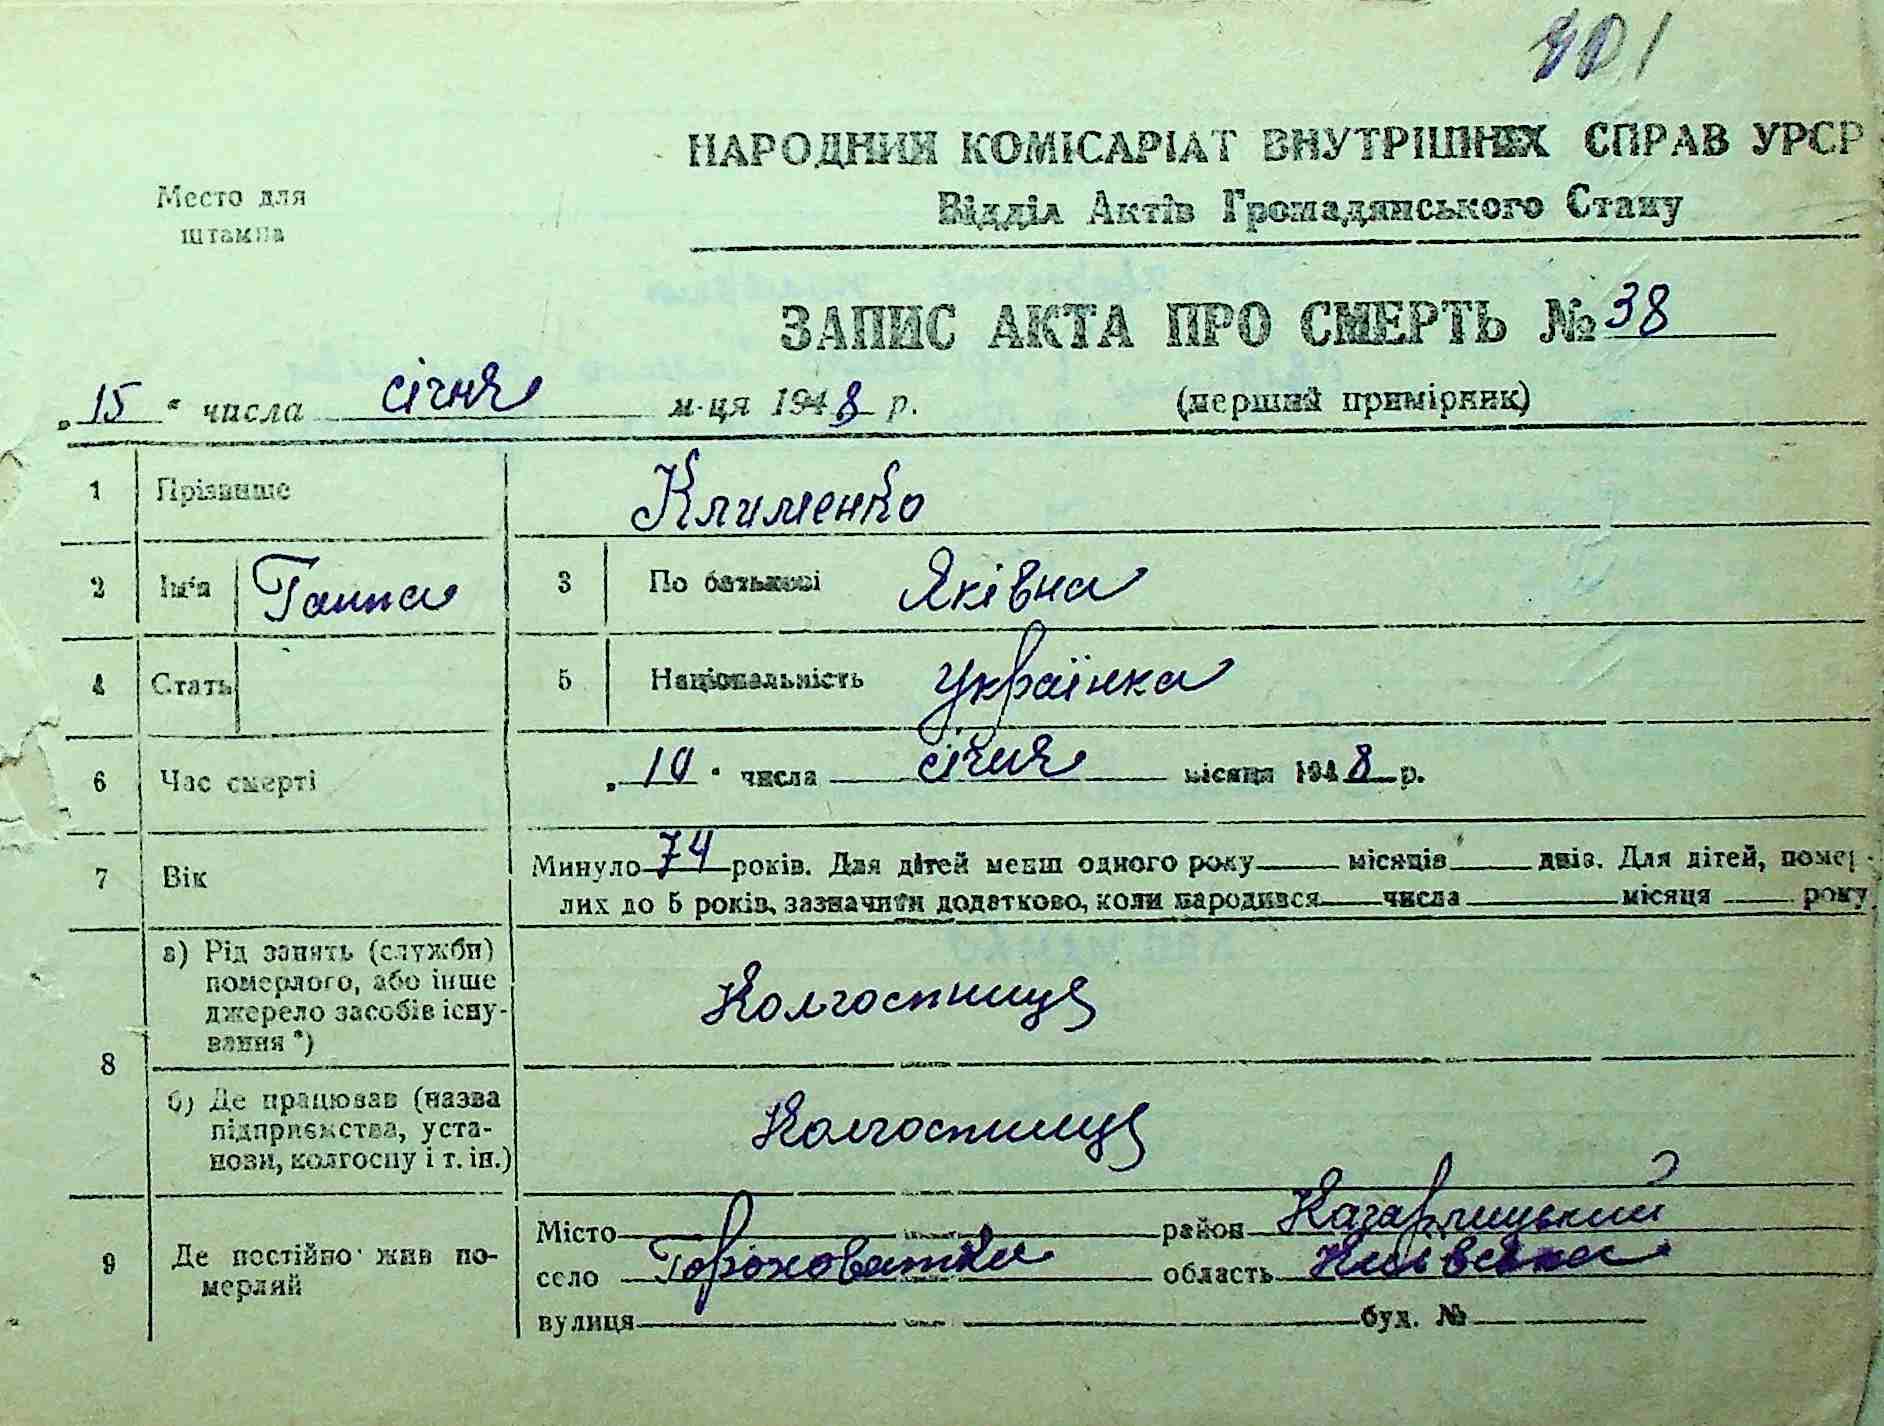 НАРОДНИЙ КОМІСАРІАТ ВНУТРІШНІХ СПРАВ УРСР
Відділ Актів Громадянського Стану
Место для
штампа
ЗАПИС АКТА ПРО СМЕРТЬ № 38
„15“ числа січня м-ця 1948 р. (перший примірник)
1 Прізвище Клименко
2 Ім'я Ганна 3 По батькові Яківна
4 Стать 5 Національність Українка
6 Час смерті „10“ числа січня місяця 1948 р.
7 Вік Минуло 74 років. Для дітей менш одного року місяців днів. Для дітей, помер-
лих до 5 років, зазначити додатково, коли народився числа місяця року
8 а) Рід занять (служби)
померлого, або інше
джерело засобів існу-
вання *)
Колгоспниця
б) Де працював (назва
підприємства, уста-
нови, колгоспу і т. ін.)
Колгоспниця
9 Де постійно жив по-
мерлий
Місто район Кагарлицький
село Гороховатка область Київська
вулиця буд. №